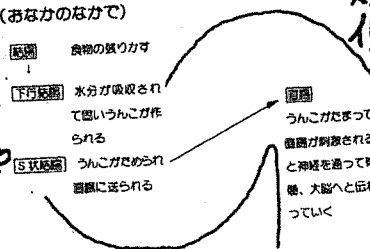 (おなかのなかで)
結腸 食物の残りかす
↓
下行結腸 水分が吸収され
て固いうんこが作
られる
S状結腸 うんこがためられ
直腸に送られる
直腸
うんこがたまって
直腸が刺激される
と神経を通って
髄、大脳へと伝わ
っていく